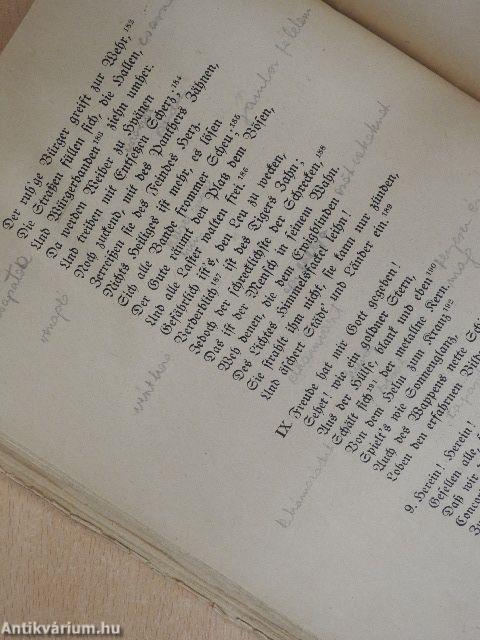 Der ruh'ge Bürger greift zur Wehr,¹⁸²
Die Straßen füllen sich, die Hallen,
Und Würgerbanden¹⁸³ ziehn umher.
Da werden Weiber zu Hyänen
Und treiben mit Entsetzen Scherz;¹⁸⁴
Noch zuckend, mit des Panthers Zähnen,
Zerreißen sie des Feindes Herz.
Nichts Heiliges ist mehr, es lösen
Sich alle Bande frommer Scheu;¹⁸⁵
Der Gute räumt den Platz dem Bösen,
Und alle Laster walten frei.¹⁸⁶
Gefährlich ist's, den Leu zu wecken,
Verderblich¹⁸⁷ ist des Tigers Zahn;
Jedoch der schrecklichste der Schrecken,¹⁸⁸
Das ist der Mensch in seinem Wahn.
Weh denen, die dem Ewigblinden
Des Lichtes Himmelsfackel leihn!
Sie strahlt ihm nicht, sie kann nur zünden,
Und äschert Städt' und Länder ein.¹⁸⁹
IX Freude hat mir Gott gegeben!
Sehet! wie ein goldner Stern,
Aus der Hülse, blank und eben¹⁹⁰
Schält sich¹⁹¹ der metallne Kern.
Von dem Helm zum Kranz¹⁹²
Spielt's wie Sonnenglanz,
Auch des Wappens nette Schil
Loben den erfahrnen Bild
9. Herein! Herein!
Gesellen alle,
Daß wir
Conco
Antikvárium.hu